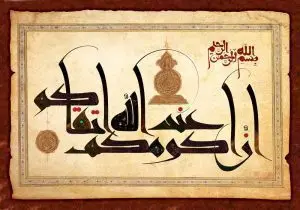 بسم الله الرحمن الرحيم
ان اكرمكم عند الله اتقاكم